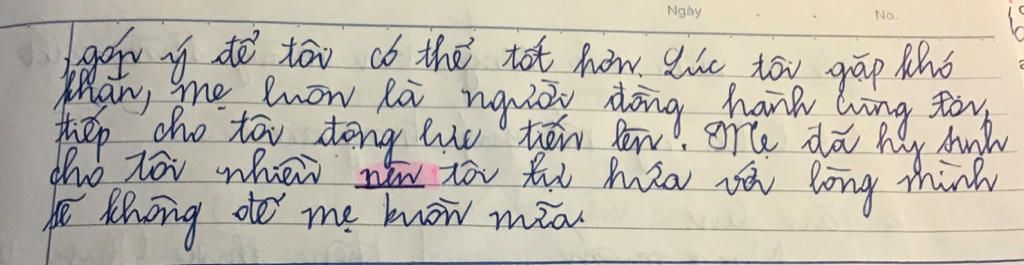 Ngày No.
góp ý để tôi có thể tốt hơn. Lúc tôi gặp khó
khăn, mẹ luôn là người đồng hành cùng tôi,
tiếp cho tôi động lực tiến lên. Mẹ đã hy sinh
cho tôi nhiều nên tôi tự hứa với lòng mình
sẽ không để mẹ buồn nữa.